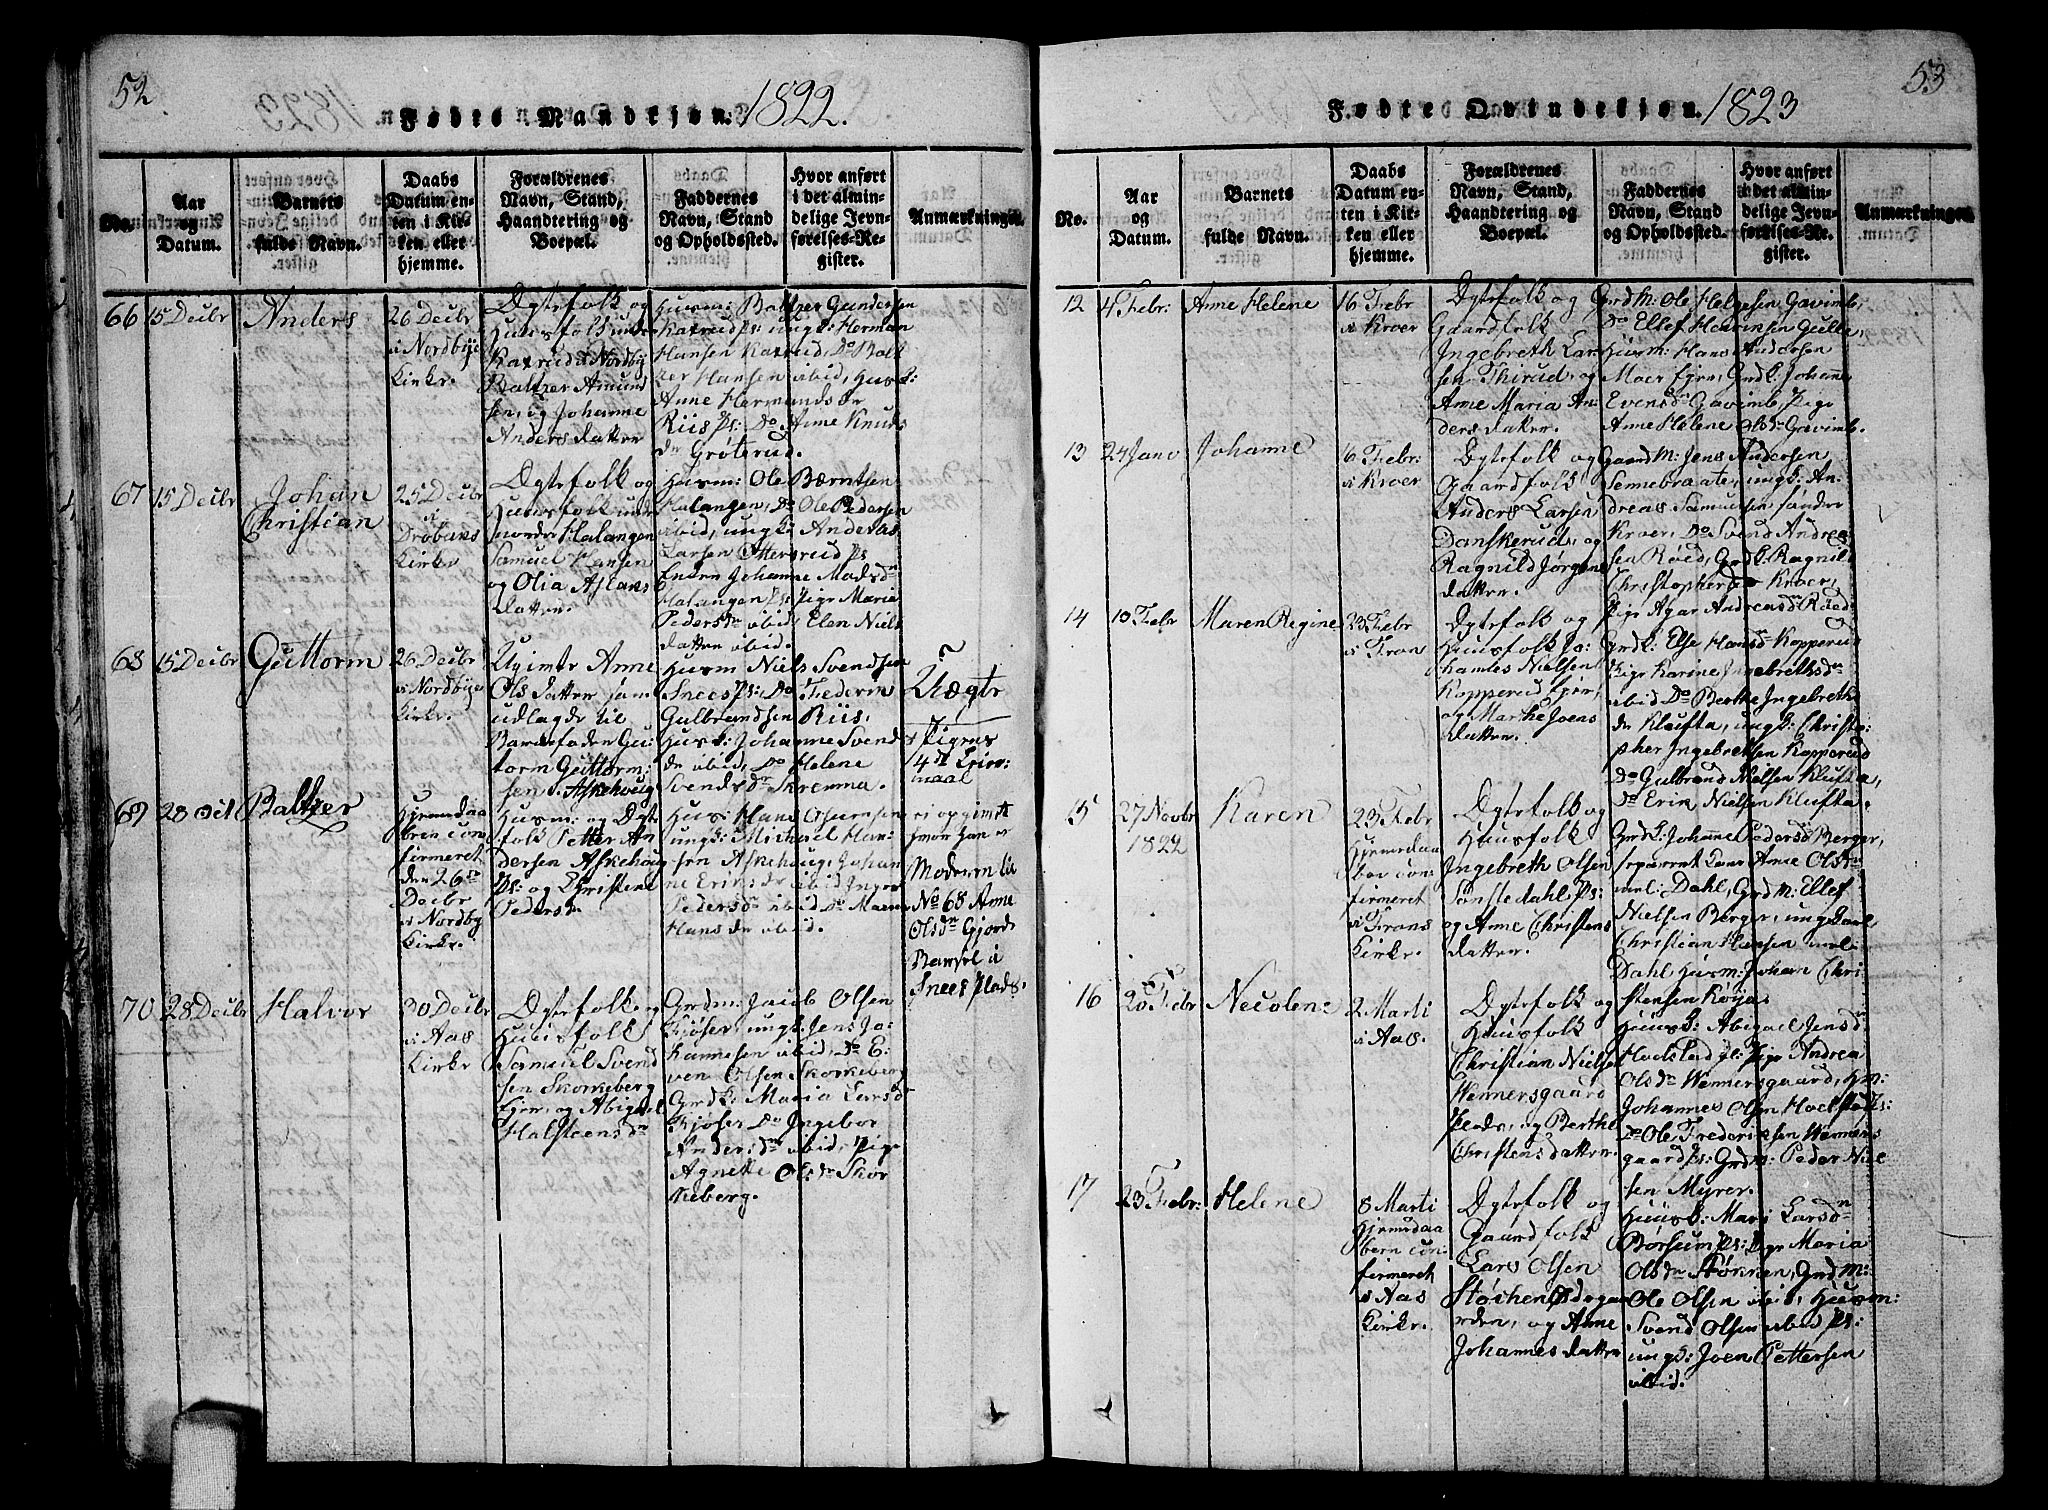 52.
Fødte Mandkjøn. 1822.
No.
Aar og Datum.
Barnets fulde Navn.
Daabs Datum enten i Kirken eller hjemme.
Forældrenes Navn, Stand, Haandtering og Boepæl.
Faddernes Navn, Stand og Opholdssted.
Hvor anført i det almindelige Jevnførelses-Register.
Anmærkninger.
66
15 Decbr
Anders
26 Decbr
i Nordbye
Kirke.
Ægtefolk og
Huusfolk under
Kaxrud i Nordby
Baltzer Amund
sen, og Johanne
Anders datter
Huusm: Baltzer Gundersen
Kaxrud ps: ungk: Herman
Hansen Kaxrud, Do Balt
zer Hansen ibid, Husk:
Anne Hermands dr
Riis Ps: Do Anne Knuds
dr Grøterud.
67
15 Decbr
Johan
Christian
25 Decbr
i
Drøbaks
Kirke
Ægtefolk og
Huusfolk under
nordre Halangen
Samuel Hansen
og Olia Aslaks
datter.
Huusm: Ole Bærntsen
Halangen, Do Ole Pedersen
ibid, ungk: Andreas
Larsen Ottersrud ps
Enken Johanne Madsdr
Halangen ps: Pige Maria
Pedersdr ibid, Elen Niels
datter ibid.
68
15 Decbr
Guttorm
26 Decbr
i Nordbye
Kirke.
Ugivte Anne
Ols datter som
udlagde til
Barnefader Gu:
torm Guttorm:
sen, Askehoug
Husm Niels Svendsen
Snees ps: Do Frederik
Gulbrandsen Riis,
Husk: Johanne Svend
dr ibid, Do Helene
Svends dr Skremma.
Uægte
Pigens
4de Leier
maal
69
28 Oct
Baltzer
Hjemedaa
bren con
firmeret
den 26de
Decbr
i Nordby
Kirke.
Husm: og Ægte
folk Petter An
dersen Askehoug
Ps: og Christene
Pedersd.
Hus: Hans
ungk: Michael Han
sen Askehoug, Johan
ne Eriks dr ibid Inger
Pedersdr ibid Do Maren
Hans dr ibid.
ei ogimtt
hvor han er
Moderen til
No 68 Anne
Olsdr Gjorde
Barsel i
Snees Plads.
70
28 Decbr
Halvor
30 Decbr
i Aas
Kirke
Ægtefolk og
Huusfolk
Samuel Svend
sen Skorkeberg
Eje, og Abigael
Halsteensdr
Grdm: Jacob Olsen
Kjøser, ungk: Jens Jo
hannesen ibid, Do E:
ven Olsen Skorkeberg
Grdk: Maria Larsd
Kjøser Do Ingebor
Anders dr ibid, Pige
Agnette Olsdr Skor
keberg.
53
Fødte Qvindekjøn. 1823
No.
Aar og Datum.
Barnets fulde Navn.
Daabs Datum enten i Kirken eller hjemme.
Forældrenes Navn, Stand, Haandtering og Boepæl.
Faddernes Navn, Stand og Opholdssted.
Hvor anført i det almindelige Jevnførelses-Register.
Anmærkninger.
12
4 Febr:
Anne Helene
16 Febr
i Kroer
Ægtefolk og
Gaardfolk
Ingebreth Lar
sen Thirud, og
Anne Maria An
ders datter.
Grd M: Ole Helgesen Gavimb,
Do Ellef Henriksen Gulle,
Husm: Hans Andersen
Moer Eje, Grdk: Johanne
Evensdr Gavimb, Pige
Anne Helene Olsdr Gavimb.
13
24 Janv
Johanne
16 Febr:
i Kroer
Ægtefolk og
Gaardfolk
Anders Larsen
Danskerud, og
Ragnild Jørgens
datter.
Gaard M: Jens Andersen
Sennebraate, ungk: An
dreas Samuelsen søndre
Kroer, Do Svend Andrea
sen Røed, Grdk Ragnild
Christophersdr Kroer,
Pige Agar Andreasdr Røed
14
10 Febr
Maren Regine
23 Febr
i Fron
Ægtefolk og
Huusfolk Jo:
hannes Nielsen
Kopperud Eje,
og Marthe Joens
datter.
Grdk: Else Hansd Kopperud
Pige Karine Ingebrethsdr
ibid Do Berthe Ingebreths
dr Klufta, ungk: Christo:
pher Ingebretsen Kopperud
Do Gulbrand Nielsen Klufta,
Do Erik Nielsen Klufta.
15
27 Novbr
1822
Karen
23 Febr
Hjemedaa
ber con:
firmeret
i Frons
Kirke.
Ægtefolk og
Huusfolk
Ingebreth Olsen
Tonstedahl Ps:
og Anne Christens
datter.
Grdk: Johanne Pedersd Berger,
Anne Olsdr
mel: Dahl, Grd M: Ellef
Nielsen Berger, ungk Carl
Christian Hansen mel:
Dahl Husm: Johan Chri
stensen Røijas
16
20 Febr
Necolene
2 Marti
i Aas.
Ægtefolk og
Huusfolk
Christian Nielsen
Wennersgaard
Plads, og Berthe
Christens datter.
Huusk: Abigael Jensdr
Hoelstad gl: Pige Andrea
Olsdr Wennersgaard, Hm:
Johannes Olsen Hoelstad ps:
Do Ole Frederiksen Wenners
gaard ps: Grdm: Peder Niel
sen Myrer.
17
23 Febr:
Helene
8 Marti
Hjemedaa
bern con:
firmeret
i Aas
Kirke.
Ægtefolk og
Gaardfolk
Lars Olsen
Støchen
rden, og Anne
Johannes datter
Huusk: Mari Larsdr
Børsum Ps: Pige Maria
Olsdr Støkken, Grd M:
Ole Olsen ibid, Husm:
Svend Olsen ibid Ps:
ungk: Joen Pettersen
ibid.